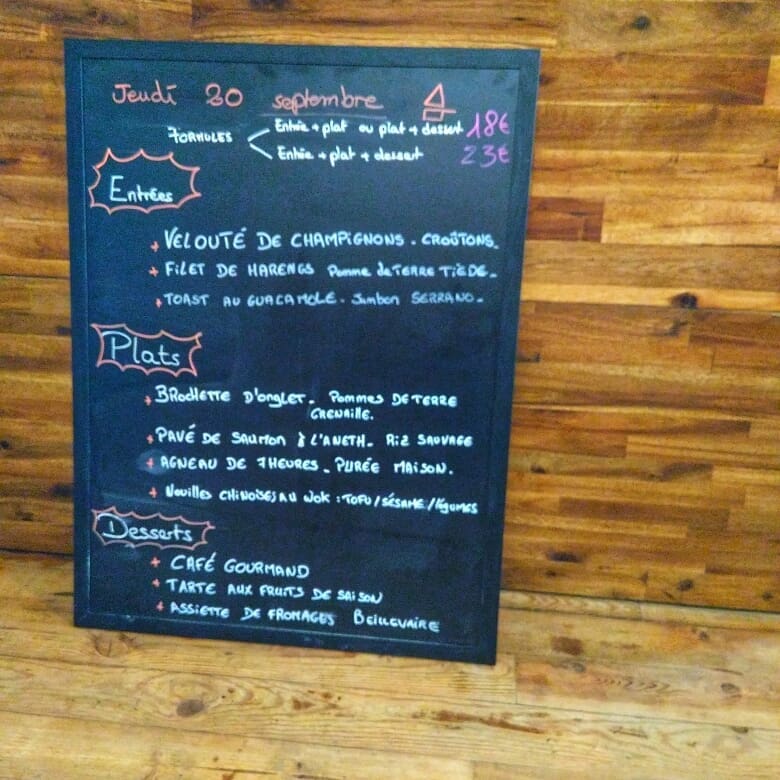 Jeudi 20 septembre
FORMULES Entrée + plat ou plat + dessert 18€
Entrée + plat + dessert 23€
Entrées
+ VELOUTÉ DE CHAMPIGNONS - CROÛTONS_
+ FILET DE HARENGS Pomme de TERRE TIÈDE_
+ TOAST AU GUACAMOLE - Jambon SERRANO_
Plats
+ BROCHETTE D'ONGLET_ Pommes DE TERRE
GRENAILLE.
+ PAVÉ DE SAUMON à L'ANETH_ RIZ SAUVAGE
+ AGNEAU DE 7 HEURES_ PURÉE MAISON.
+ Nouilles CHINOISES AU WOK : TOFU/SÉSAME/légumes
Desserts
+ CAFÉ GOURMAND
+ TARTE AUX FRUITS DE SAISON
+ ASSIETTE DE FROMAGES BEILLEVAIRE